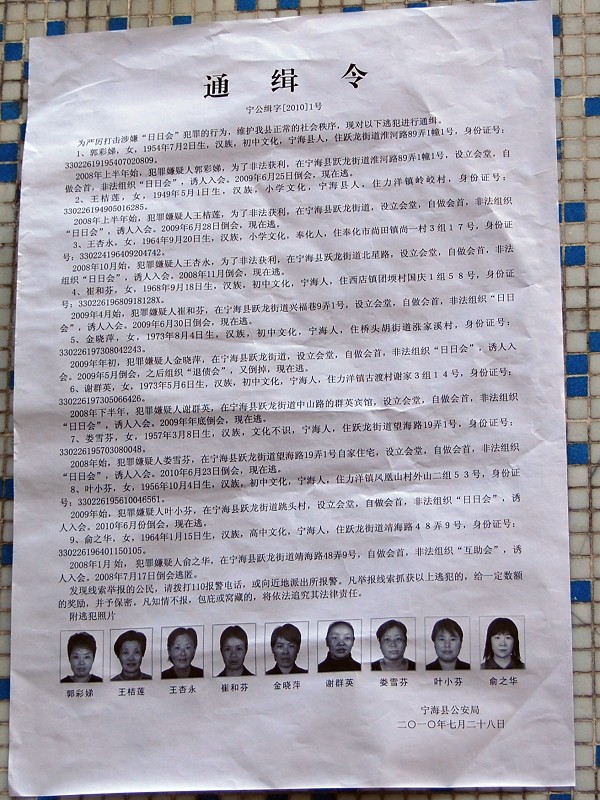 通 缉 令
宁公缉字[2010]1号
为严厉打击涉嫌“日日会”犯罪的行为，维护我县正常的社会秩序，现对以下逃犯进行通缉。
1、郭彩娣，女，1954年7月2日生，汉族，初中文化，宁海县人，住跃龙街道淮河路89弄1幢1号，身份证号：
330226195407020809。
2008年上半年始，犯罪嫌疑人郭彩娣，为了非法获利，在宁海县跃龙街道淮河路89弄1幢1号，设立会堂，自
做会首，非法组织“日日会”，诱人入会。2009年6月25日倒会，现在逃。
2、王桔莲，女，1949年5月1日生，汉族，小学文化，宁海县人，住力洋镇岭峧村，身份证号：
330226194905016285。
2008年上半年始，犯罪嫌疑人王桔莲，为了非法获利，在宁海县跃龙街道，设立会堂，自做会首，非法组织
“日日会”，诱人入会。2009年6月28日倒会，现在逃。
3、王杏永，女，1964年9月20日生，汉族，小学文化，奉化人，住奉化市尚田镇尚一村３组１７号，身份证
号：330224196409204742。
2008年10月始，犯罪嫌疑人王杏永，为了非法获利，在宁海县跃龙街道北星路，设立会堂，自做会首，非法
组织“日日会”，诱人入会，2008年11月倒会，现在逃。
4、崔和芬，女，1968年9月18日生，汉族，初中文化，宁海县人，住西店镇团堧村国庆１组５８号，身份证
号：33022619680918128X。
2009年4月始，犯罪嫌疑人崔和芬，在宁海县跃龙街道兴福巷9弄1号，设立会堂，自做会首，非法组织“日日
会”，诱人入会。2009年6月30日倒会，现在逃。
5、金晓萍，女，1973年8月4日生，汉族，初中文化，宁海人，住桥头胡街道涨家溪村，身份证号：
330226197308042243。
2009年年初，犯罪嫌疑人金晓萍，在宁海县跃龙街道，设立会堂，自做会首，非法组织“日日会”，诱人入
会。2009年5月倒会，之后组织“退债会”，又倒掉，现在逃。
6、谢群英，女，1973年5月6日生，汉族，初中文化，宁海人，住力洋镇古渡村谢家３组１４号，身份证号：
330226197305066426。
2008年下半年，犯罪嫌疑人谢群英，在宁海县跃龙街道中山路的群英宾馆，设立会堂，自做会首，非法组织
“日日会”，诱人入会。2009年年底倒会，现在逃。
7、娄雪芬，女，1957年3月8日生，汉族，文化不识，宁海人，住跃龙街道望海路19弄1号，身份证号：
330226195703080048。
2008年始，犯罪嫌疑人娄雪芬，在宁海县跃龙街道望海路19弄1号自家住宅，设立会堂，自做会首，非法组织
“日日会”，诱人入会。2010年6月23日倒会，现在逃。
8、叶小芬，女，1956年10月4日生，汉族，初中文化，宁海人，住力洋镇凤凰山村外山二组５３号，身份证
号：330226195610046561。
2009年始，犯罪嫌疑人叶小芬，在宁海县跃龙街道跳头村，设立会堂，自做会首，非法组织“日日会”，诱
人入会。2010年6月份倒会，现在逃。
9、俞之华，女，1964年1月15日生，汉族，高中文化，宁海人，住跃龙街道靖海路４８弄９号，身份证号：
330226196401150105。
2008年1月始，犯罪嫌疑人俞之华，在宁海县跃龙街道靖海路48弄9号，自做会首，非法组织“互助会”，诱
人入会。2008年7月17日倒会逃匿。
发现线索举报的公民，请拨打110报警电话，或向近地派出所报警。凡举报线索抓获以上逃犯的，给一定数额
的奖励，并予保密。凡知情不报，包庇或窝藏的，将依法追究其法律责任。
附逃犯照片
郭彩娣 王桔莲 王杏永 崔和芬 金晓萍 谢群英 娄雪芬 叶小芬 俞之华
宁海县公安局
二〇一〇年七月二十八日